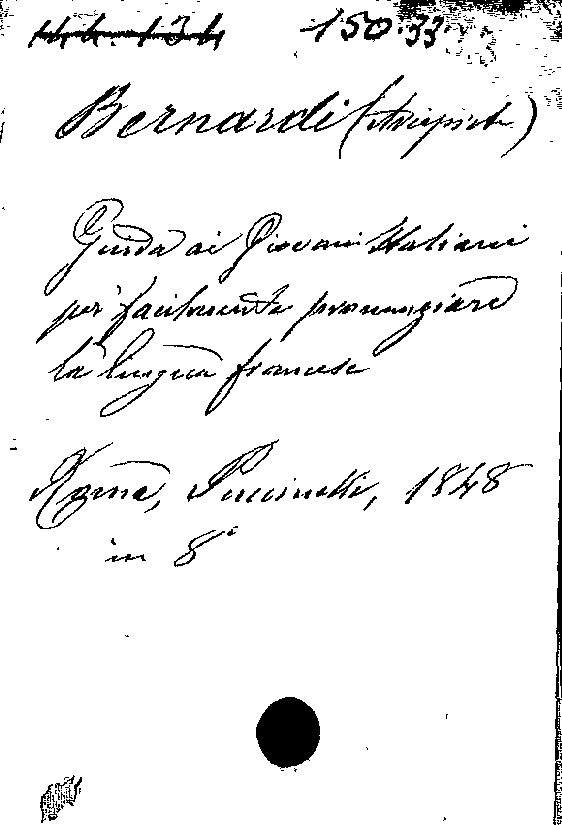 150.33.
Bernardi
Guida ai Giovani Italiani
per facilmente pronunziare
la lingua francese
Roma, Puccinelli, 1848
in 8°